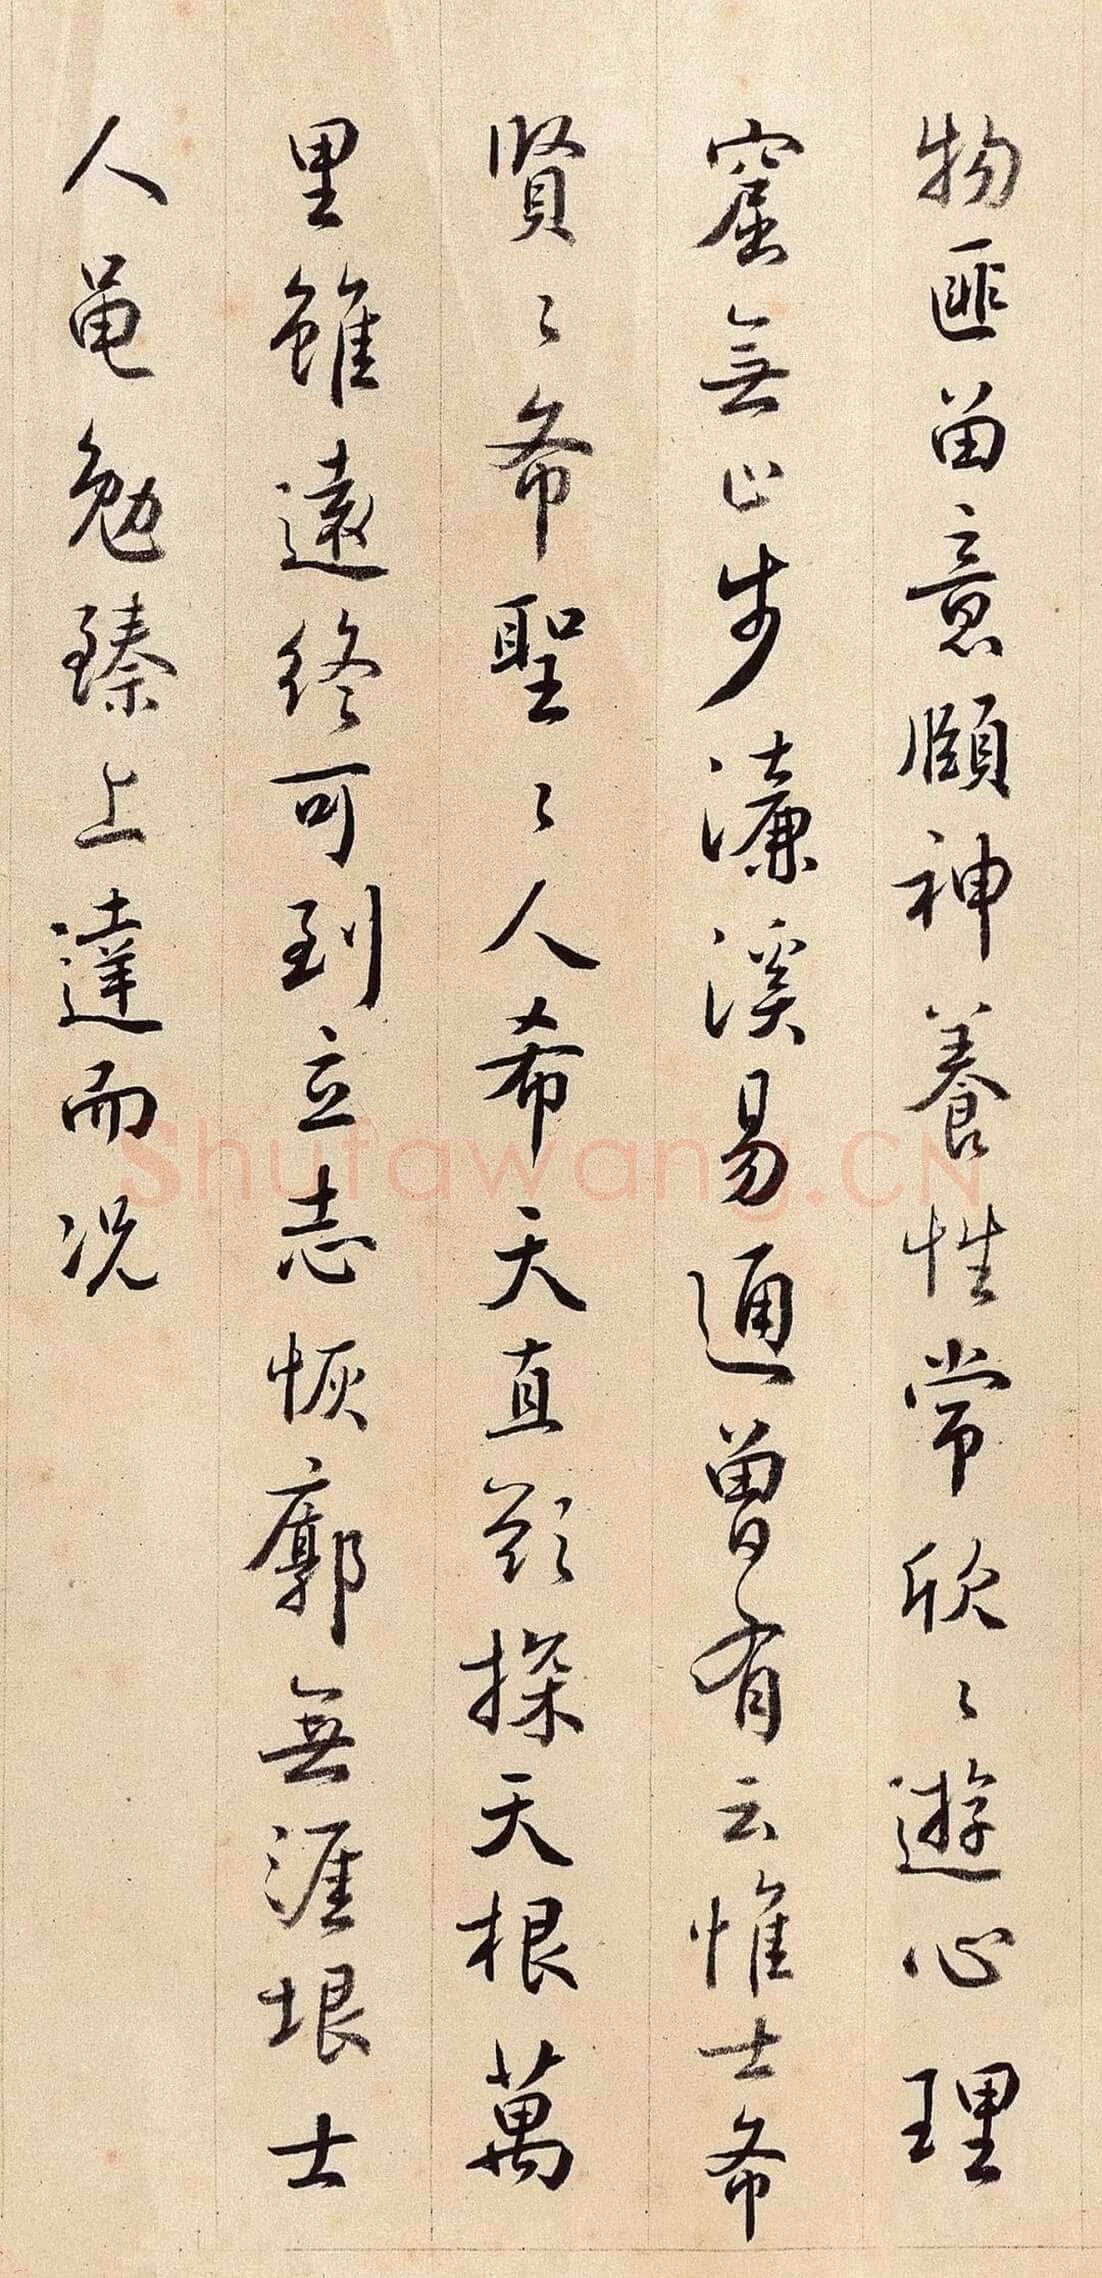 物匪留意頤神養性常欣〻遊心理
窟無止步濂溪易通曾有云惟士希
賢〻希聖〻人希天直欲探天根萬
里雖遠終可到立志恢廓無涯垠士
人黽勉臻上達而況
Shufawang.CN